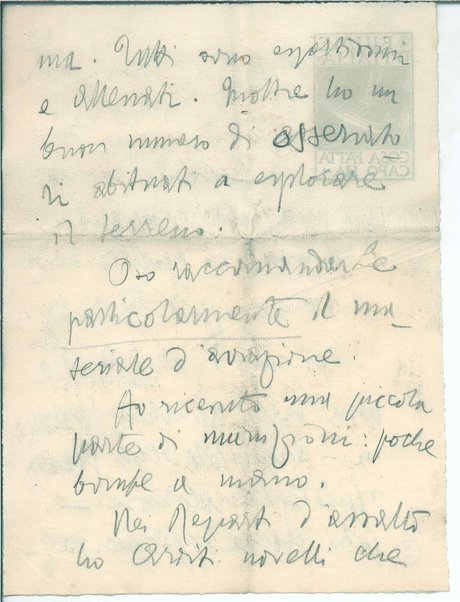 ma. Tutti sono espertissimi
e allenati. Inoltre ho un
buon numero di osservato-
ri abituati a esplorare
il terreno.
Oso raccomandarLe
particolarmente il ma-
teriale d'aviazione.
Ho ricevuto una piccola
parte di munizioni: poche
bombe a mano.
Nei Reparti d'assalto
ho Arditi novelli che